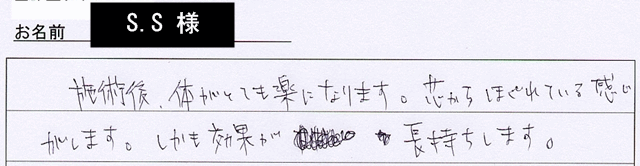 お名前 S.S 様
施術後、体がとても楽になります。芯からほぐれている感じ
がします。しかも効果が長持ちします。